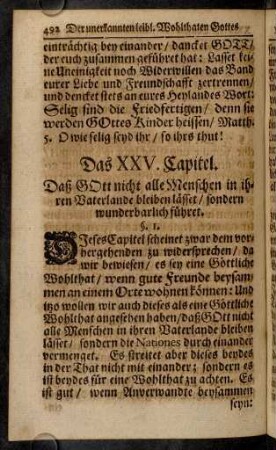 492 Der unerkannten leibl. Wohlthaten Gottes
einträchtig bey einander / dancket GOTT /
der euch zusammen geführet hat: Lasset kei-
ne Uneinigkeit noch Widerwillen das Band
eurer Liebe und Freundschafft zertrennen /
und dencket stets an eures Heylandes Wort:
Selig sind die Friedfertigen / denn sie
werden GOttes Kinder heissen / Matth.
5. O wie selig seyd ihr / so ihrs thut!
Das XXV. Capitel.
Daß GOtt nicht alle Menschen in ih-
ren Vaterlande bleiben lässet / sondern
wunderbarlich führet.
§. 1.
DJeses Capitel scheinet zwar dem vor-
hergehenden zu widersprechen / da
wir bewiesen / es sey eine Göttliche
Wohlthat / wenn gute Freunde beysam-
men an einem Orte wohnen können: Und
itzo wollen wir auch dieses als eine Göttliche
Wohlthat angesehen haben / daß GOtt nicht
alle Menschen in ihren Vaterlande bleiben
lässet / sondern die Nationes durch einander
vermenget. Es streitet aber dieses beydes
in der That nicht mit einander; sondern es
ist beydes für eine Wohlthat zu achten. Es
ist gut / wenn Anverwandte beysammen
seyn: